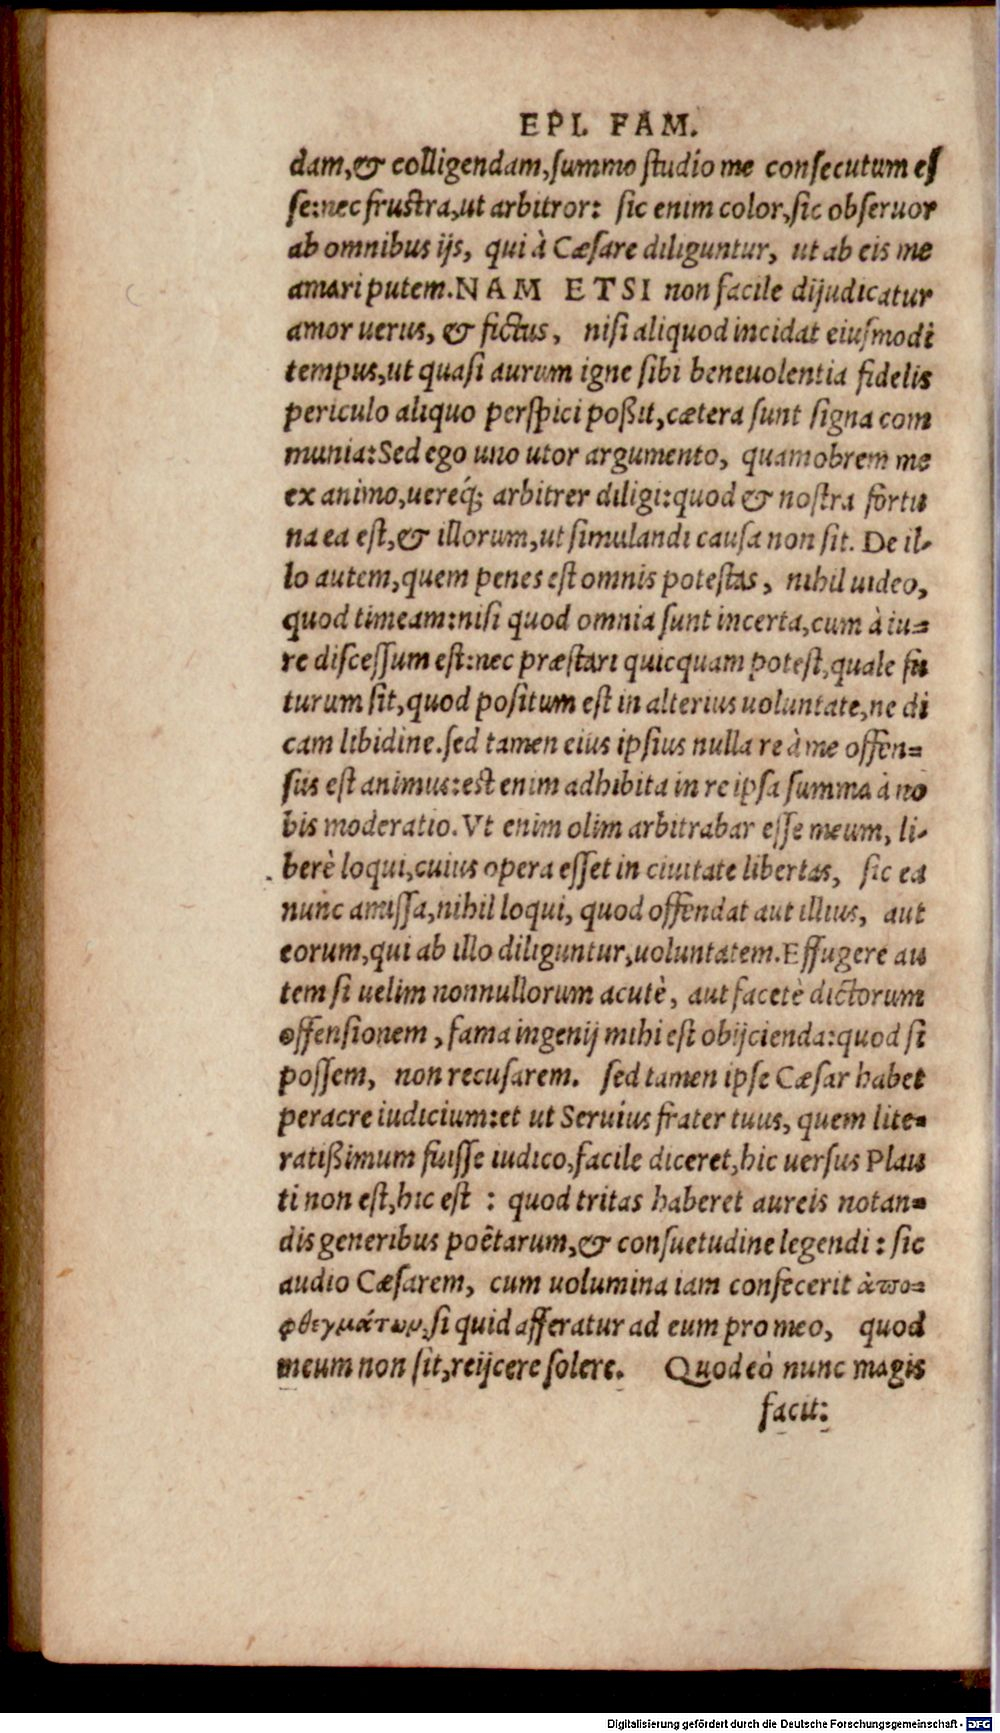 EPI. FAM.
dam,& colligendam,ſummo ſtudio me conſecutum eſ
ſe:nec fruſtra,ut arbitror: ſic enim color,ſic obſeruor
ab omnibus ijs, qui à Cæſare diliguntur, ut ab eis me
amari putem.NAM ETSI non facile dijudicatur
amor uerus, & fictus, niſi aliquod incidat eiuſmodi
tempus,ut quaſi aurum igne ſibi beneuolentia fidelis
periculo aliquo perſpici poßit,cætera ſunt ſigna com
munia:Sed ego uno utor argumento, quamobrem me
ex animo,uereq́; arbitrer diligi:quod & noſtra fortu
na ea eſt,& illorum,ut ſimulandi cauſa non ſit. De il-
lo autem,quem penes eſt omnis poteſtas, nihil uideo,
quod timeam:niſi quod omnia ſunt incerta,cum à iu=
re diſceſſum eſt:nec præſtari quicquam poteſt,quale fu
turum ſit,quod poſitum eſt in alterius uoluntate,ne di
cam libidine.ſed tamen eius ipſius nulla re à me offen=
ſus eſt animus:eſt enim adhibita in re ipſa ſumma à no
bis moderatio.Vt enim olim arbitrabar eſſe meum, li-
berè loqui,cuius opera eſſet in ciuitate libertas, ſic ea
nunc amiſſa,nihil loqui, quod offendat aut illius, aut
eorum,qui ab illo diliguntur,uoluntatem.Effugere au
tem ſi uelim nonnullorum acutè, aut facetè dictorum
offenſionem, fama ingenij mihi eſt obijcienda:quod ſi
poſſem, non recuſarem. ſed tamen ipſe Cæſar habet
peracre iudicium:et ut Seruius frater tuus, quem lite=
ratißimum fuiſſe iudico,facile diceret,hic uerſus Plau
ti non eſt,hic eſt : quod tritas haberet aureis notan=
dis generibus poëtarum,& conſuetudine legendi: ſic
audio Cæſarem, cum uolumina iam confecerit ἀπο=
φθεγμάτων,ſi quid afferatur ad eum pro meo, quod
meum non ſit,reijcere ſolere. Quod eò nunc magis
facit:
Digitalisierung gefördert durch die Deutsche Forschungsgemeinschaft - DFG